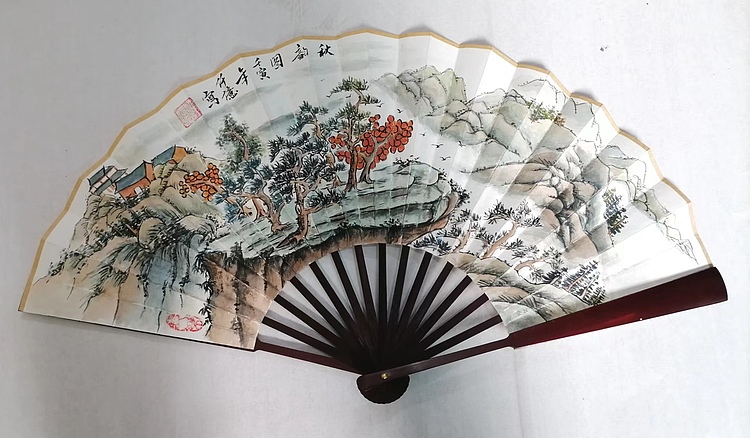 秋韵图
壬寅年
作德写